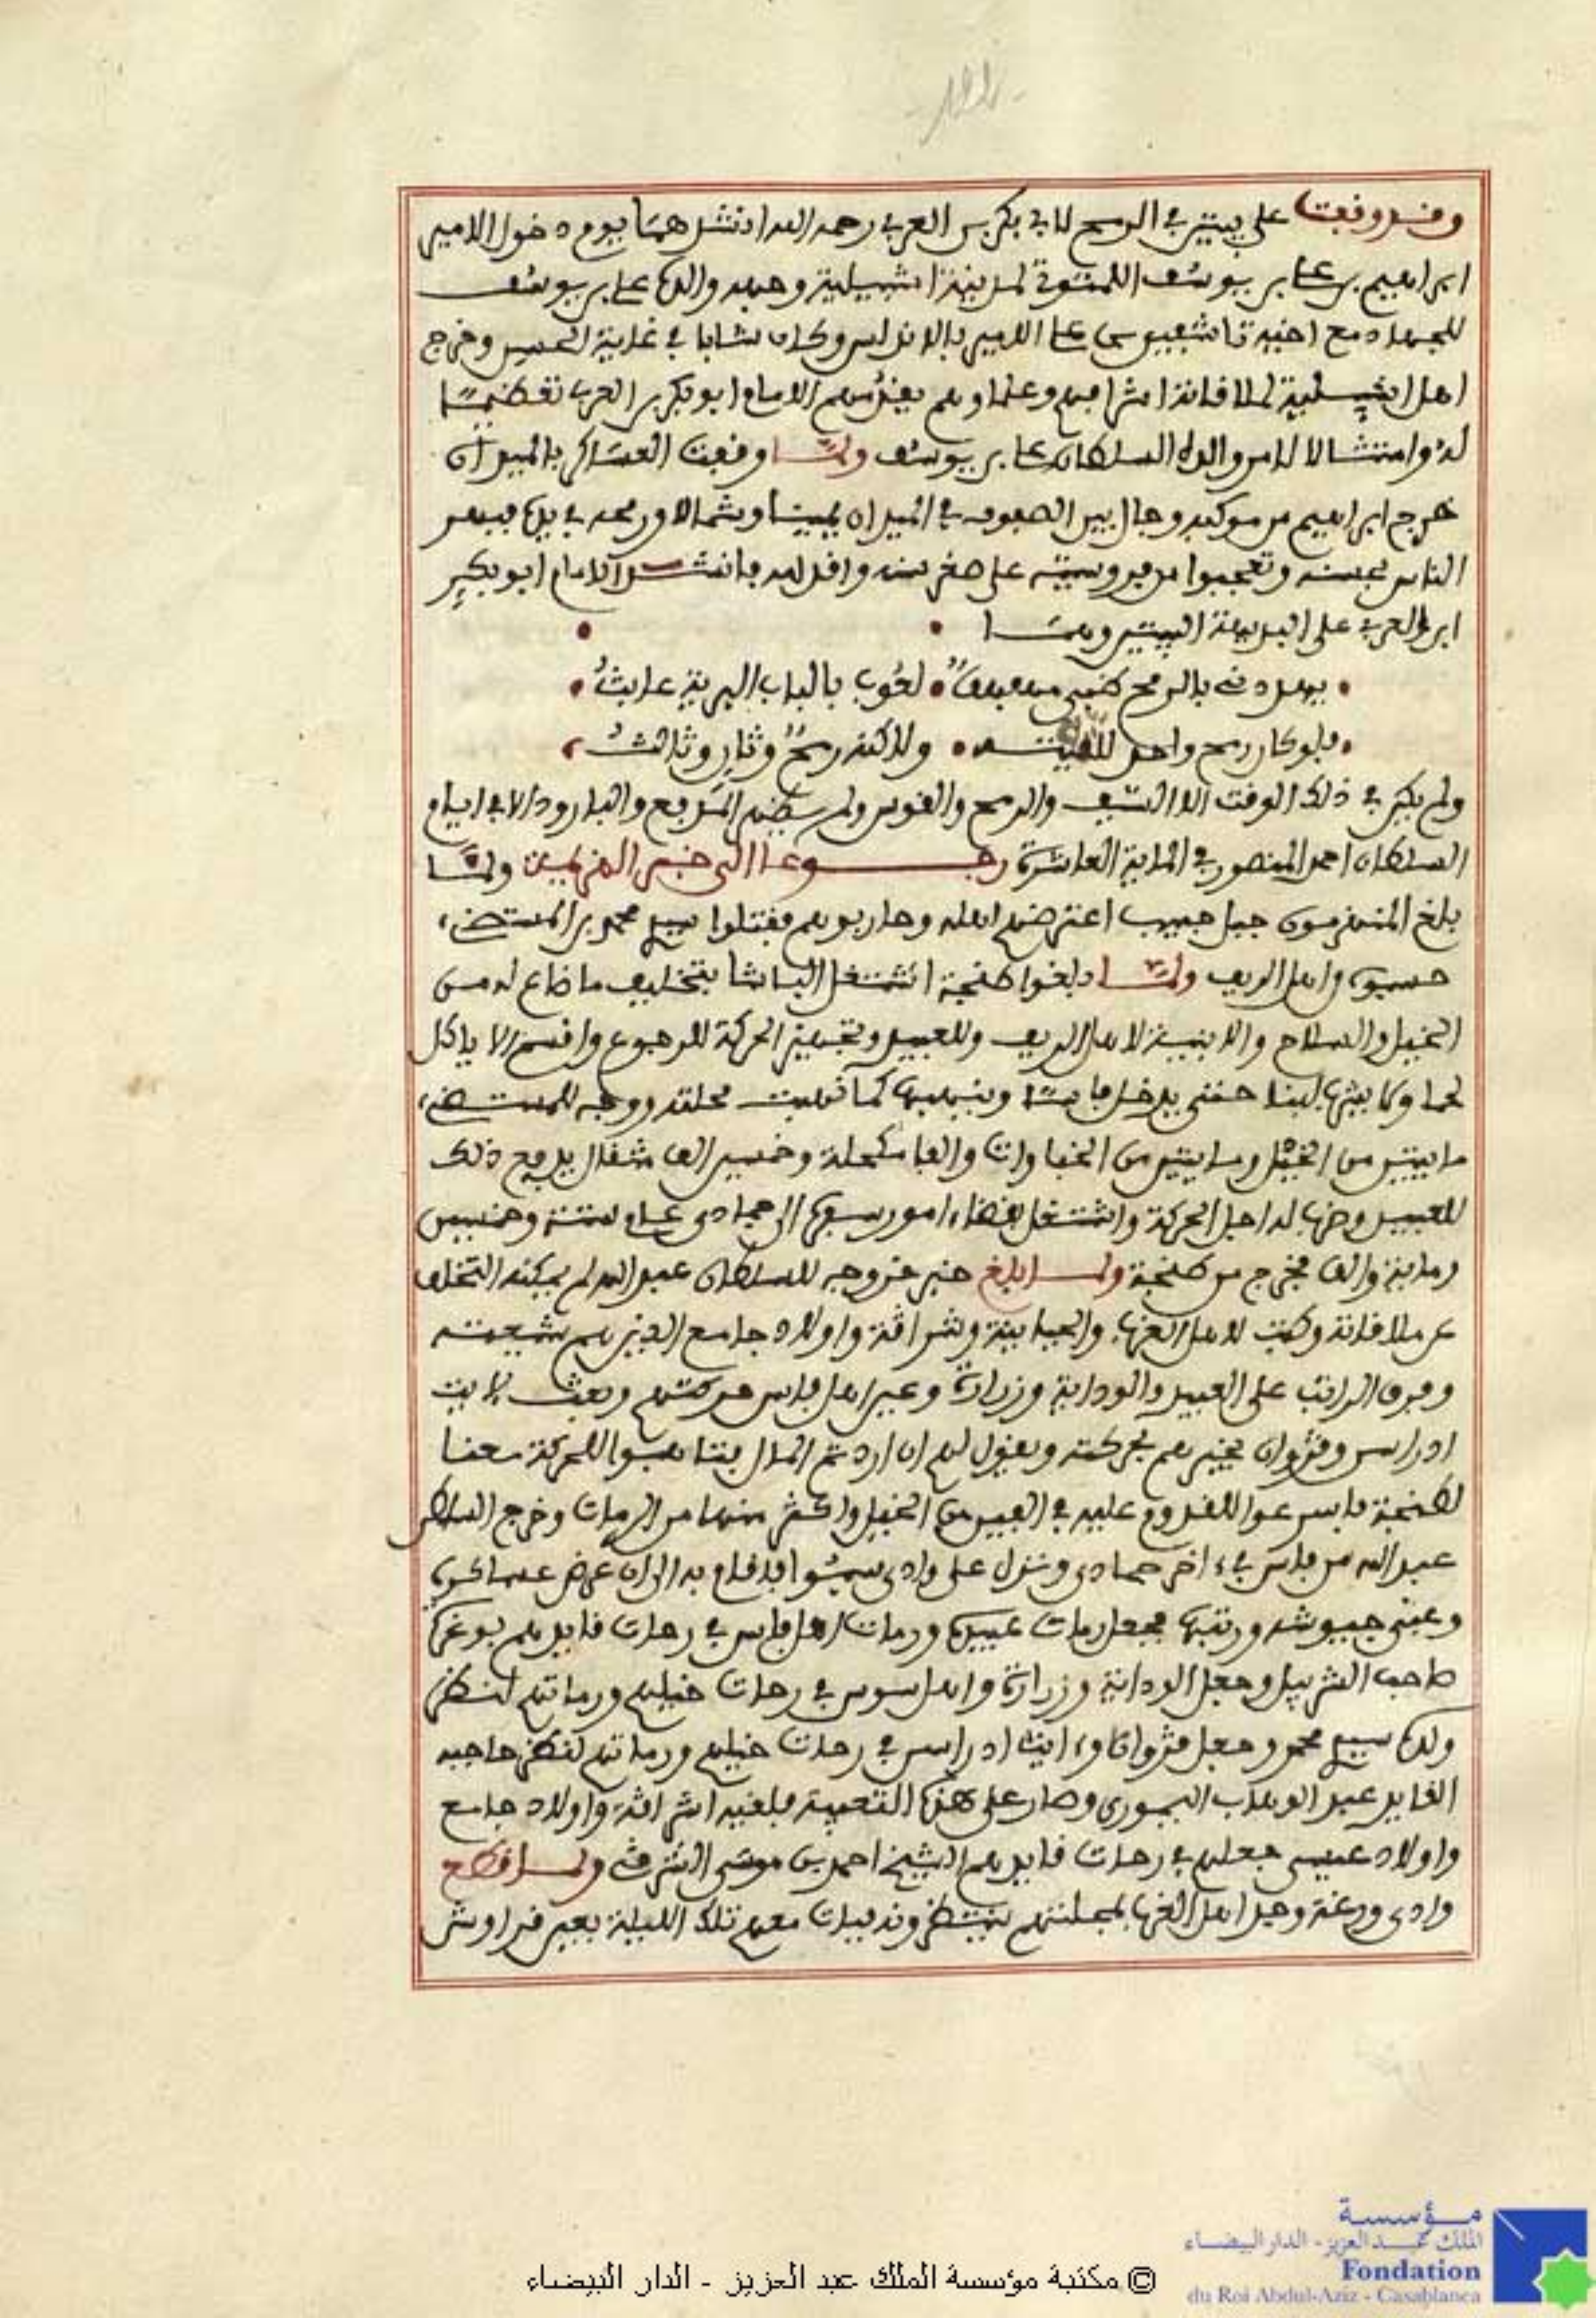 وقد وقفت على بيتين في الرمح لابي بكر بن العربي رحمه الله انشدهما يوم دخول الامير
ابراهيم بن علي بن يوسف اللمتوني لمدينة اشبيلية وجهه والده علي بن يوسف
للجهاد مع اخيه تاشفين بن علي الامير بالاندلس وكان شابا في غاية الحسن وخرج
اهل اشبيلية لملاقاته اشرافهم وعلماوهم يقدمهم الامام ابو بكر بن العربي تعظيما
له وامتثالا لامر والده السلطان علي بن يوسف ولما وقفت العساكر بالميدان
خرج ابراهيم من موكبه وجال بين الصفوف في الميدان يمينا وشمالا ورمحه في يده فبهر
الناس بحسنه وتعجبوا من فروسيته على صغر سنه واقباله فانشد الامام ابو بكر
ابن العربي على البديهة البيتين وهما
يهددني بالرمح ظبي مهفهف لعوب بالباب البرية عابث
فلو كان رمح واحد لاتقيته ولاكنه رمح وثان وثالث
ولم يكن في ذلك الوقت الا السيف والرمح والقوس ولم يظهر المدفع والبارود الا في ايام
السلطان احمد المنصور في الماية العاشرة رجوعا الى خبر المنهزمين ولما
بلغ المنهزمون جبل حبيب اعترضهم اهله وحاربوهم فقتلوا سيدي محمد بن المستضيء
حسبوه من اهل الريف ولما بلغوا طنجة اشتغل الباشا بتخليف ما ضاع له من
الخيل والسلاح والابنية لاهل الريف وللعبيد وتجهيز الحركة للرجوع واقسم الا ياكل
لحما ولا يشرب لبنا حتى يدخل فاسا وينهبها كما نهبت محلته ووجه للمستضيء
مايتين من الخيل ومايتين من الخباوات والفا مكحلة وخمسين الف مثقال يدفع ذلك
للعبيد وضرب له اجل الحركة واشتغل بقضاء امور سفره الى جمادى عام ستة وخمسين
وماية والف فخرج من طنجة ولما بلغ خبر خروجه للسلطان عبد الله لم يمكنه التخلف
عن ملاقاته وكتب لاهل الغرب والحياينة وشراقة واولاد جامع الذين هم شيعته
وفرق الراتب على العبيد والوداية وزرارة وعين اهل فاس حركتهم وبعث لايت
ادراسن وقروان يخبرهم بحركته ويقول لهم ان اردتم المال فتاهبوا للحركة معنا
لطنجة فاسرعوا للقدوم عليه في الفين من الخيل واكثر منها من الرمات وخرج السلطان
عبد الله من فاس في ءاخر جمادى ونزل على وادي سبو فاقام به الى ان عرض عساكره
وعبى جيوشه ورتبها فجعل رمات عبيده ورمات اهل فاس في رحات قايدهم بوعزة
صاحب الشربيل وجعل الوداية وزرارة واهل سوس في رحات خيلهم ورماتهم لنظر
ولده سيدي محمد وجعل قروان وايت ادراسن في رحات خيلهم ورماتهم لنظر حاجبه
القايد عبد الوهاب اليموري وصار على هذه التعبية فلقيه اشراقة واولاد جامع
واولاد عيسى فجعلهم في رحات قايدهم الشيخ احمد بن موسى الشرقي ولما قطع
وادي ورغة وجد اهل الغرب بمحلتهم ينتظرونه فبات معهم تلك الليلة بعين قراوش
© مكتبة مؤسسة الملك عبد العزيز - الدار البيضاء
مؤسسة
الملك عبد العزيز - الدار البيضاء
Fondation
du Roi Abdul-Aziz - Casablanca